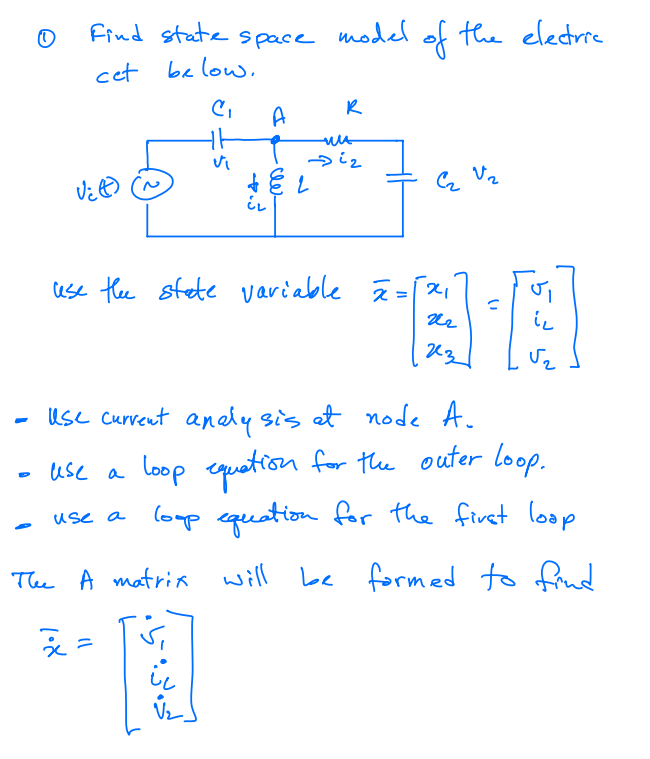 ① Find state space model of the electric
cct below.
C₁ A R
v₁ → i₂
Vᵢ(t) ~ L C₂ V₂
i_L
use the state variable x̄ = [x₁ x₂ x₃] = [v₁ i_L v₂]
- use current analysis at node A.
- use a loop equation for the outer loop.
- use a loop equation for the first loop
The A matrix will be formed to find
ẋ̄ = [v̇₁ i̇_L v̇₂]